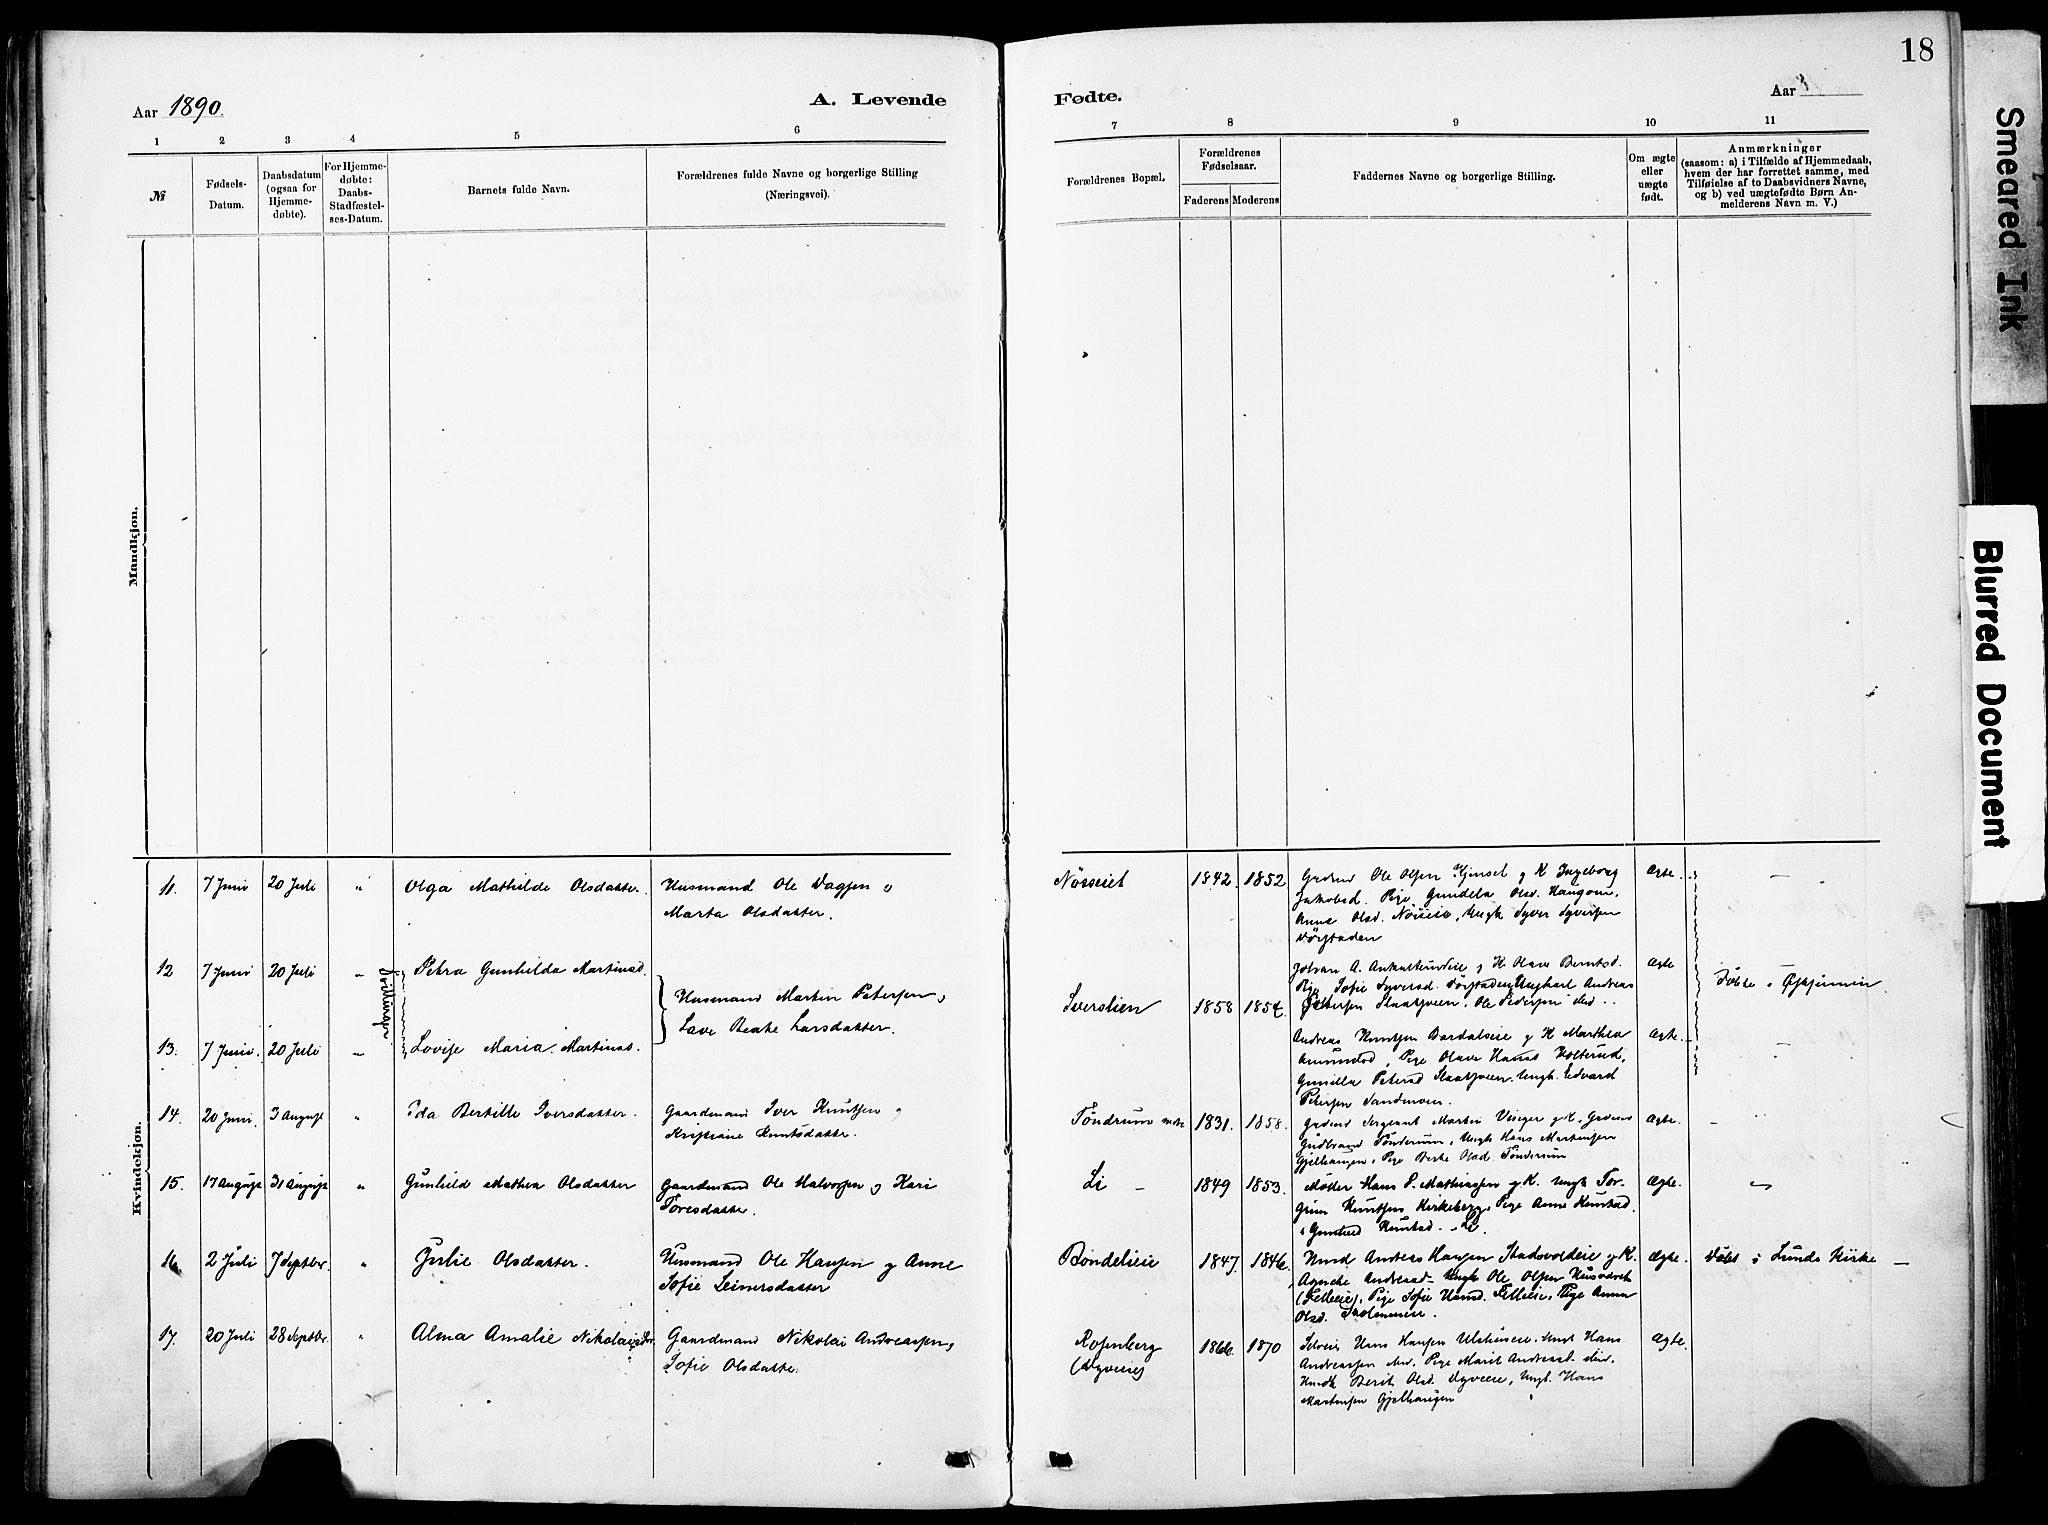 18
Smeared Ink
Blurred Document
Aar 1890.
A. Levende
Fødte.
Aar
1 2 3 4 5 6
7 8 9 10 11
№
Fødsels-
Datum.
Daabsdatum
(ogsaa for
Hjemme-
døbte).
For Hjemme-
døbte:
Daabs-
Stadfæstel-
ses-Datum.
Barnets fulde Navn.
Forældrenes fulde Navne og borgerlige Stilling
(Næringsvei).
Forældrenes Bopæl.
Forældrenes
Fødselsaar.
Faderens Moderens
Faddernes Navne og borgerlige Stilling.
Om ægte
eller
uægte
født.
Anmærkninger
(saasom: a) i Tilfælde af Hjemmedaab,
hvem der har forrettet samme, med
Tilføielse af to Daabsvidners Navne,
og b) ved uægtefødte Børn An-
melderens Navn m. V.)
Mandkjøn.
Kvindekjøn.
11. 7 Juni 20 Juli " Olga Mathilde Olsdatter. Husmand Ole Dagsen o
Marta Olsdatter.
Nøsseiet 1842. 1852 Ole Olsen Kjinsel g K Ingeborg Ægte.
Jakobsd. Pige Gundela Olsd. Haugom,
Anne Olsd. Nøsseie, Ungk Syver Syversen
12 7 Juni 20 Juli " Petra Gunhilda Martinsd.
Tvillinger
Husmand Martin Petersen,
Lave Beate Larsdatter.
Sverslien 1858 1854.
A. g K. Olave Berntsd. Ægte
Pige Sofie Syversd. Andreas
Petersen Slaatsveen, Ole Pedersen ibid.
Døbte i
13. 7 Juni. 20 Juli " Lovise Maria Martinsd.
Andreas Knutsen Bardalseie g K Marthea Ægte.
Amundsd, Pige Olave Hansd Holterud,
Gunilla Petersd Slaatsveen. Ungk. Edvard
Petersen Sandmoen.
14. 20 Juni. 3 August " Ida Bertille Iversdatter. Gaardmand Iver Knutsen g
Kristiane Knutsdatter.
Tøndrum 1831. 1858. Sergeant Martin g K. Ægte.
Gudbrand Tønderum, Ungk Hans Martinsen
Gjelhaugen, Pige Berthe Olsd. Tønderum
15. 17 August 31 August " Gunhild Mathea Olsdatter Gaardmand Ole Halvorsen g Kari
Toresdatter.
Li 1849 1853. Møller Hans P. Mathiassen g K. Ungk Tor-
grim Knutsen Kirkeberg, Pige Anne Knutsd.
Gunhild Knutsd. Li. Ægte.
16 2 Juli 7 Septbr. " Julie Olsdatter. Husmand Ole Hansen g Anne
Sofie Seiversdatter
Bøndelieie 1847. 1846. Andreas Hansen g K. Ægte.
Agnethe Andreasd Ungk Ole Olsen
(Felleeie), Pige Sofie Hansd. Felleeie, Pige Anna
Olsd.
Døbt i Lunde Kirke
17. 20 Juli 28 Septbr. " Alma Amalie Nikolaisdtr. Gaardmand Nikolai Andreassen,
Sofie Olsdatter.
Rosenberg
(Dyveeie) 1866. 1870 Selveier Hans Hansen Ungk Hans Ægte.
Andreassen ibid, Pige Marit Andreasd. ibid.
Berit Olsd. Dyveeie, Ungk. Hans
Martinsen Gjelhaugen